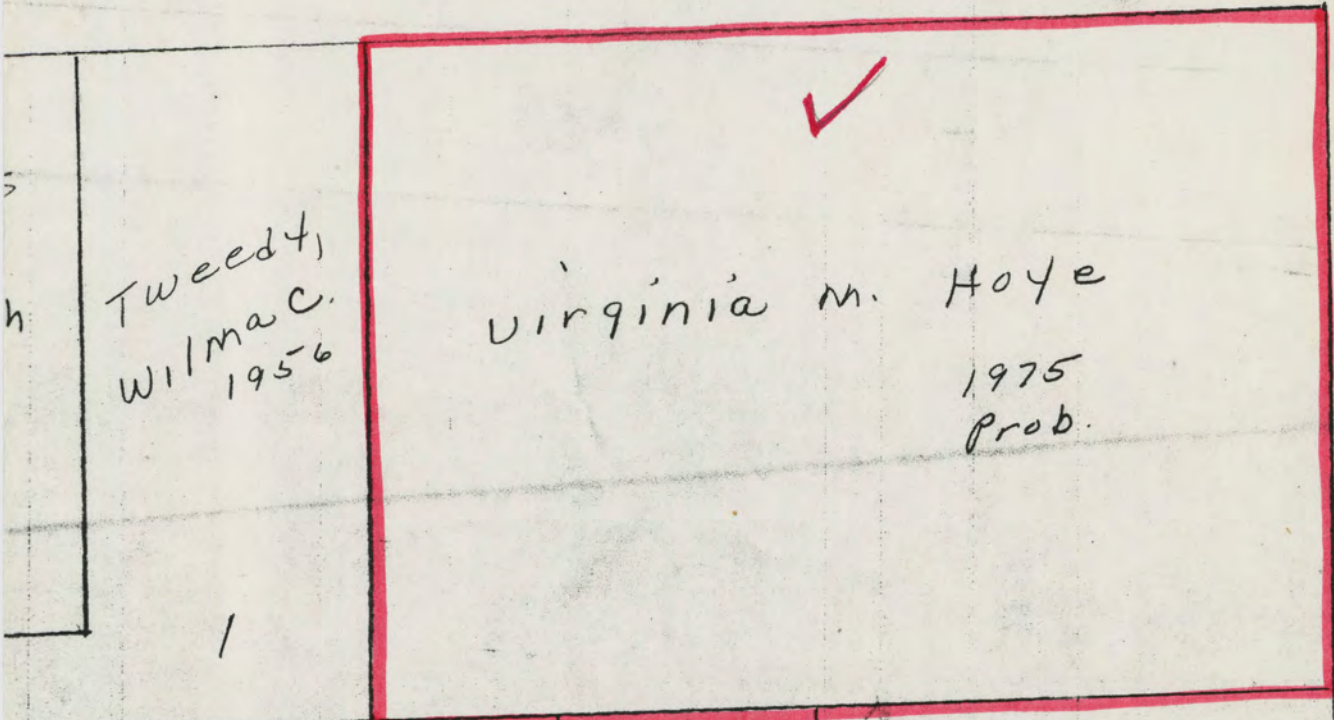 Tweedy,
Wilma C.
1956
1
Virginia M. Hoye
1975
Prob.
h